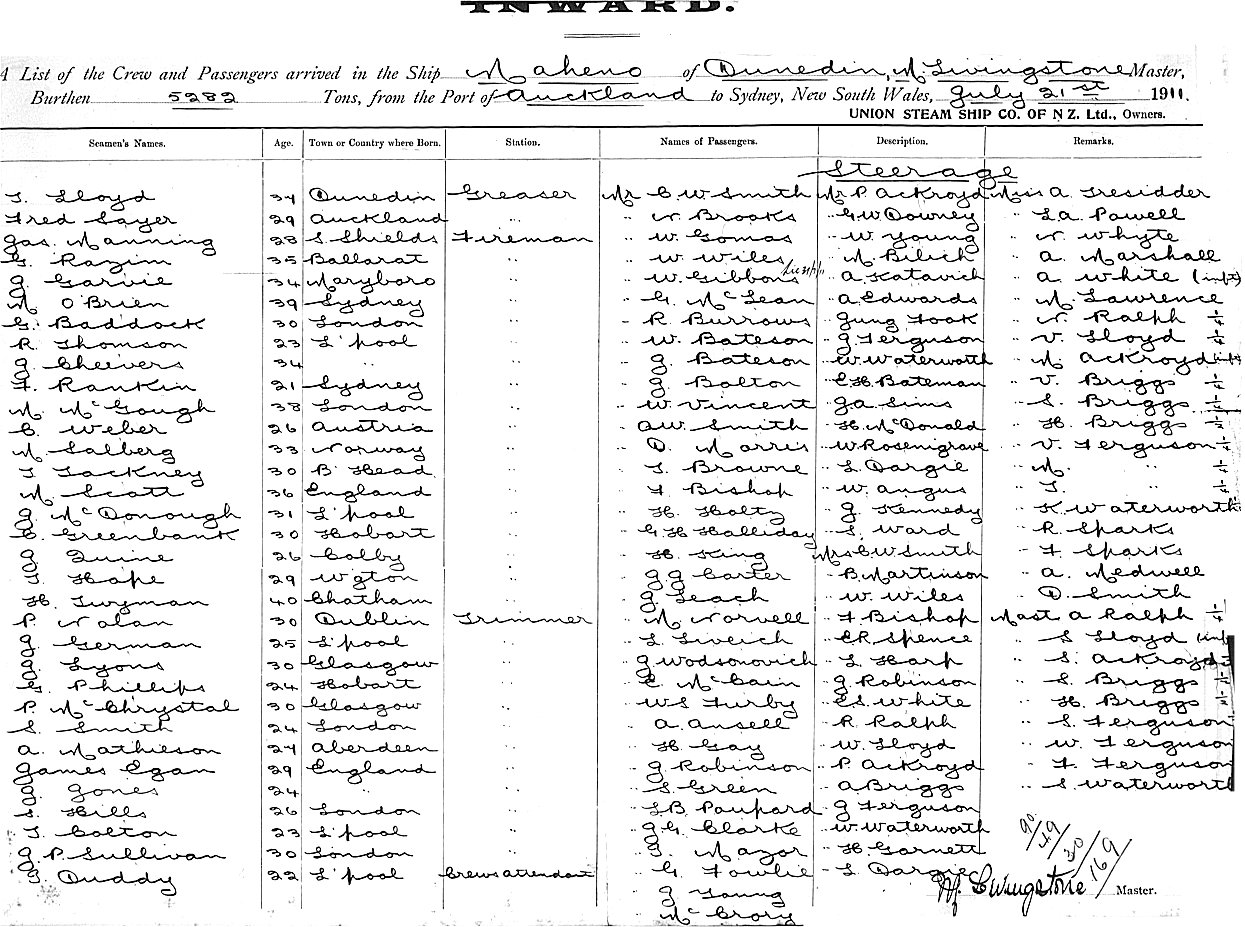 INWARD.
A List of the Crew and Passengers arrived in the Ship Maheno of Dunedin, M Livingstone Master,
Burthen 5282 Tons, from the Port of Auckland to Sydney, New South Wales, July 21st 1911.
UNION STEAM SHIP CO. OF N Z. Ltd., Owners.
Seamen's Names. Age. Town or Country where Born. Station. Names of Passengers. Description. Remarks.
Steerage
T. Lloyd 34 Dunedin Greaser Mr C. W Smith Mr P. Ackroyd Miss A Tresidder
Fred Sayer 29 Auckland " " N Brooks " G. W Downey " L A Powell
Jas. Manning 28 S Shields Fireman " W. Gomas " W Young " N Whyte
G. Razim 35 Ballarat " " W Wiles " M Bilich " A. Marshall
J. Garvie 34 Maryboro " " W. Gibbons " A Katavich " A White (inft)
M O'Brien 39 Sydney " " G. McLean " A Edwards " M Lawrence
G. Baddock 30 London " " R Burrows " Jung Fook " N Ralph
R. Thomson 23 L'pool " " W. Bateson " J. Ferguson " V. Lloyd
J Cheevers 34 " " " J. Bateson " W Waterworth " M Ackroyd
F. Rankin 21 Sydney " " J. Bolton " E H Bateman " V. Briggs
M. McGough 38 London " " W Vincent " J A Sims " S. Briggs
C. Weber 26 Austria " " A W. Smith " H. McDonald " H. Briggs
M Salberg 33 Norway " " D. Morris " W Rosengrave " V. Ferguson
T Tackney 30 B'Head " " T. Browne " L Dargie " M. "
M Scott 36 England " " F. Bishop " W. Angus " T. "
J. McDonough 31 L'pool " " H. Holtz " J. Kennedy " K Waterworth
C. Greenbank 30 Hobart " " G H Halliday " S. Ward " R Sparks
J Quine 26 Colby " " H. King Mrs C. W Smith " F Sparks
T. Hape 29 W'gton " " J J Carter " B. Martinson " A. Medwell
H. Twyman 40 Chatham " " J. Leach " W Wiles " D. Smith
P Nolan 30 Dublin Trimmer " M Norvell " F Bishop Mast A Ralph
J German 25 L'pool " " L Liveich " E R Spence " S Lloyd (inft)
J. Lyons 30 Glasgow " " J Wodsonovich " L Harp " S. Ackroyd
G. Phillips 24 Hobart " " E McCain " J. Robinson " S. Briggs
P. McChrystal 30 Glasgow " " W S Furby " E S. White " H. Briggs
S Smith 24 London " " A. Ansell " R Ralph " S. Ferguson
A. Mathieson 27 Aberdeen " " H Gay " W. Lloyd " W. Ferguson
James Egan 29 England " " J Robinson " P. Ackroyd " F. Ferguson
J. Jones 24 " " " S Green " A Briggs " S Waterworth
S. Hills 26 London " " L B Paupard " J Ferguson
T. Colton 23 L'pool " " J G. Clarke " W Waterworth
J. P. Sullivan 30 London " " J. Mazor " H Garnett
J. Duddy 22 L'pool Crews attendant " G Fowlie " L Dargie
" J Young
" McCrory
90/49/30/169
M Livingstone Master.